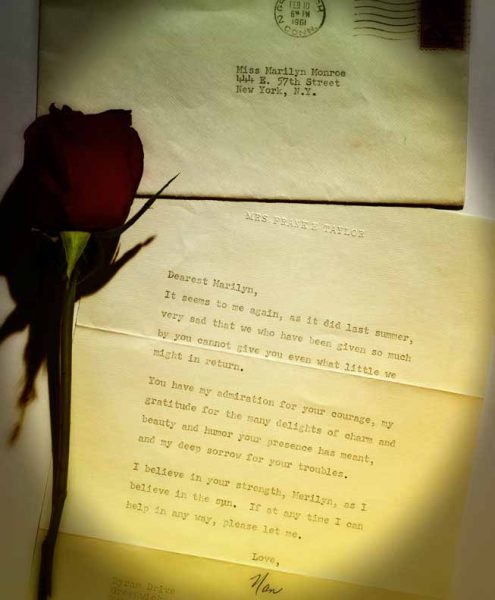 FEB 10
6 PM
1961
CONN.
Miss Marilyn Monroe
444 E. 57th Street
New York, N.Y.
MRS FRANK E TAYLOR
Dearest Marilyn,
It seems to me again, as it did last summer,
very sad that we who have been given so much
by you cannot give you even what little we
might in return.
You have my admiration for your courage, my
gratitude for the many delights of charm and
beauty and humor your presence has meant,
and my deep sorrow for your troubles.
I believe in your strength, Merilyn, as I
believe in the sun. If at any time I can
help in any way, please let me.
Love,
Nan
Byram Drive
Greenwich